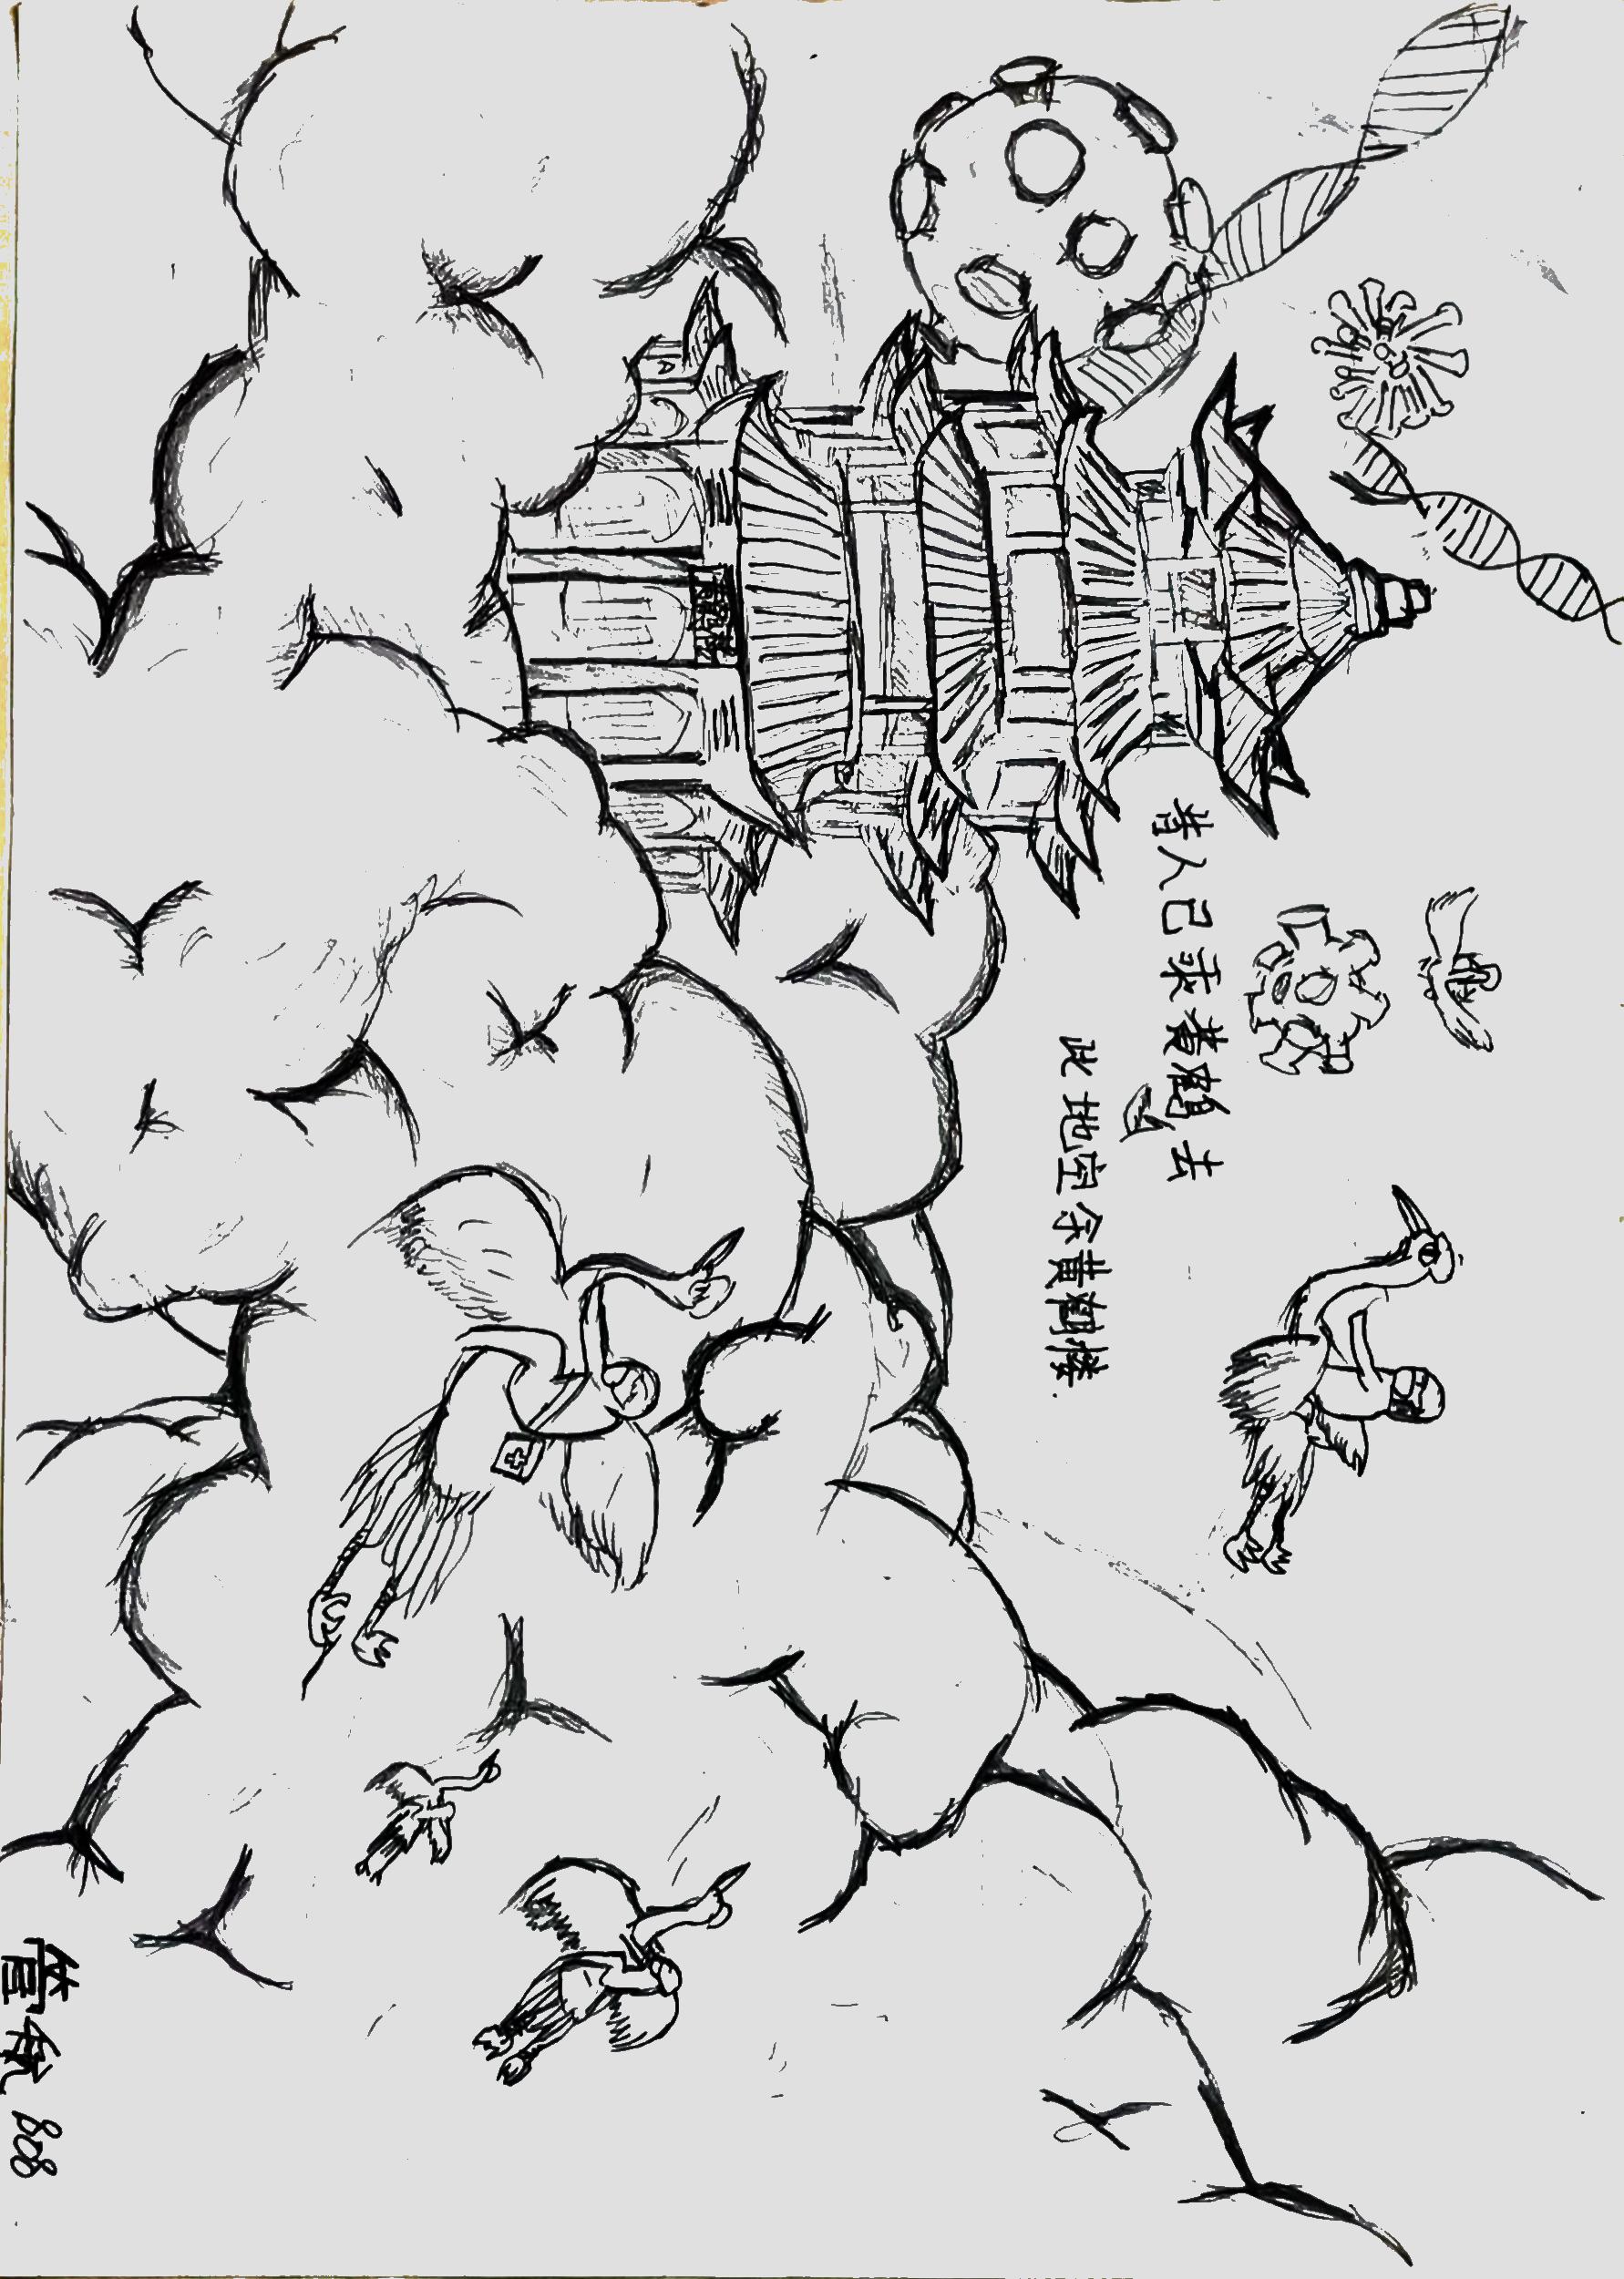 昔人已乘黄鹤去
此地空余黄鹤楼.
808